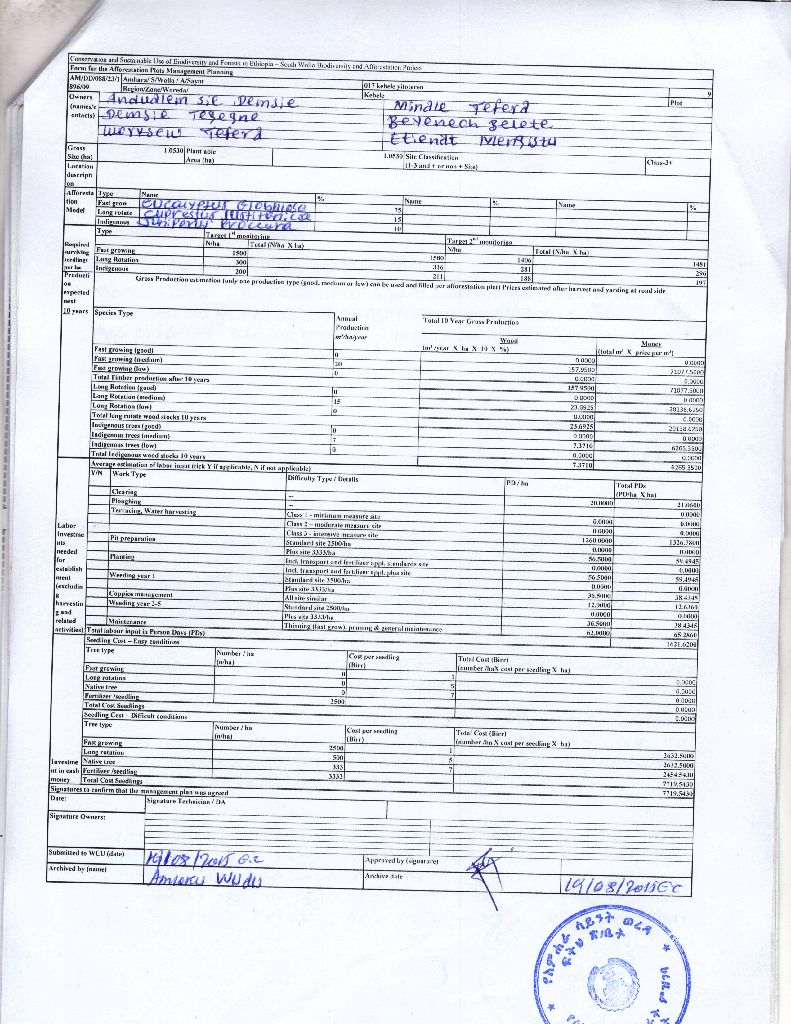 Conservation and Sustainable Use of Biodiversity and Forests in Ethiopia – South Wollo Biodiversity and Afforestation Project
Form for the Afforestation Plots Management Planning
AM/DD/088/23/1 Amhara/ S/Wollo / A/Saynt
896/09 Region/Zone/Woreda/ 017 kebele yitotaren 9
Kebele Plot
Owners (name/s contacts)
Andualem sie Demsie Mindle Teferd
Demsie Tesegne Beyenech Belete
Worksew Teferd Etienat Merfistu
Gross Size (ha) 1.0530 Plantable Area (ha) 1.0530 Site Classification (1-3 and + or non + Site) Class-3+
Location description
Afforestation Model
Type Name % Name % Name %
Fast grow Eucalyptus Globulose 75
Long rotate Cupressus lustitanica 15
Indigenous Juniperus Proceara 10
Required surviving seedlings per ha
Type Target 1st monitoring Target 2nd monitoring
N/ha Total (N/ha X ha) N/ha Total (N/ha X ha)
Fast growing 1500 1580 1406 1481
Long Rotation 300 316 281 296
Indigenous 200 211 188 197
Production expected next 10 years
Gross Production estimation (only one production type (good, medium or low) can be used and filled per afforestation plot) Prices estimated after harvest and yarding at road side.
Species Type Annual Production m³/ha/year Total 10 Year Gross Production
Wood (m³/year X ha X 10 X %) Money (total m³ X price per m³)
Fast growing (good) 0 0.0000 0.0000
Fast growing (medium) 20 157.9500 71077.5000
Fast growing (low) 0 0.0000 0.0000
Total Timber production after 10 years 157.9500 71077.5000
Long Rotation (good) 0 0.0000 0.0000
Long Rotation (medium) 15 23.6925 20138.6250
Long Rotation (low) 0 0.0000 0.0000
Total long rotate wood stocks 10 years 23.6925 20138.6250
Indigenous trees (good) 0 0.0000 0.0000
Indigenous trees (medium) 7 7.3710 6265.3500
Indigenous trees (low) 0 0.0000 0.0000
Total Indigenous wood stocks 10 years 7.3710 6265.3500
Labor Investments needed for establishment (excluding harvesting and related activities)
Average estimation of labor input (tick Y if applicable, N if not applicable)
Y/N Work Type Difficulty Type / Details PD / ha Total PDs (PD/ha X ha)
Clearing -- 20.0000 21.0600
Ploughing -- 0.0000
Terracing, Water harvesting Class 1 - minimum measure site 0.0000 0.0000
Class 2 – moderate measure site 0.0000 0.0000
Class 3 - intensive measure site 1260.0000 1326.7800
Pit preparation Standard site 2500/ha 0.0000 0.0000
Plus site 3333/ha 56.5000 59.4945
Planting Incl. transport and fertilizer appl. standards site 0.0000 0.0000
Incl. transport and fertilizer appl. plus site 56.5000 59.4945
Weeding year 1 Standard site 2500/ha 0.0000 0.0000
Plus site 3333/ha 36.5000 38.4345
Coppice management All site similar 12.0000 12.6360
Weeding year 2-5 Standard site 2500/ha 0.0000 0.0000
Plus site 3333/ha 36.5000 38.4345
Maintenance Thinning (fast grow), pruning & general maintenance 62.0000 65.2860
Total labour input in Person Days (PDs) 1621.6200
Seedling Cost – Easy conditions
Tree type Number / ha (n/ha) Cost per seedling (Birr) Total Cost (Birr) (number /haX cost per seedling X ha)
Fast growing 0 1 0.0000
Long rotation 0 5 0.0000
Native tree 0 7 0.0000
Fertilizer /seedling 2500 0.0000
Total Cost Seedlings 0.0000
Investment in cash money
Seedling Cost – Difficult conditions
Tree type Number / ha (n/ha) Cost per seedling (Birr) Total Cost (Birr) (number /ha X cost per seedling X ha)
Fast growing 2500 1 2632.5000
Long rotation 500 5 2632.5000
Native tree 333 7 2454.5430
Fertilizer /seedling 3333 7719.5430
Total Cost Seedlings 7719.5430
Signatures to confirm that the management plan was agreed
Date: Signature Technician / DA
Signature Owners:
Submitted to WLU (date) 19/08/2015 G.C Approved by (signature)
Archived by (name) Archive date 19/08/2015 E.C